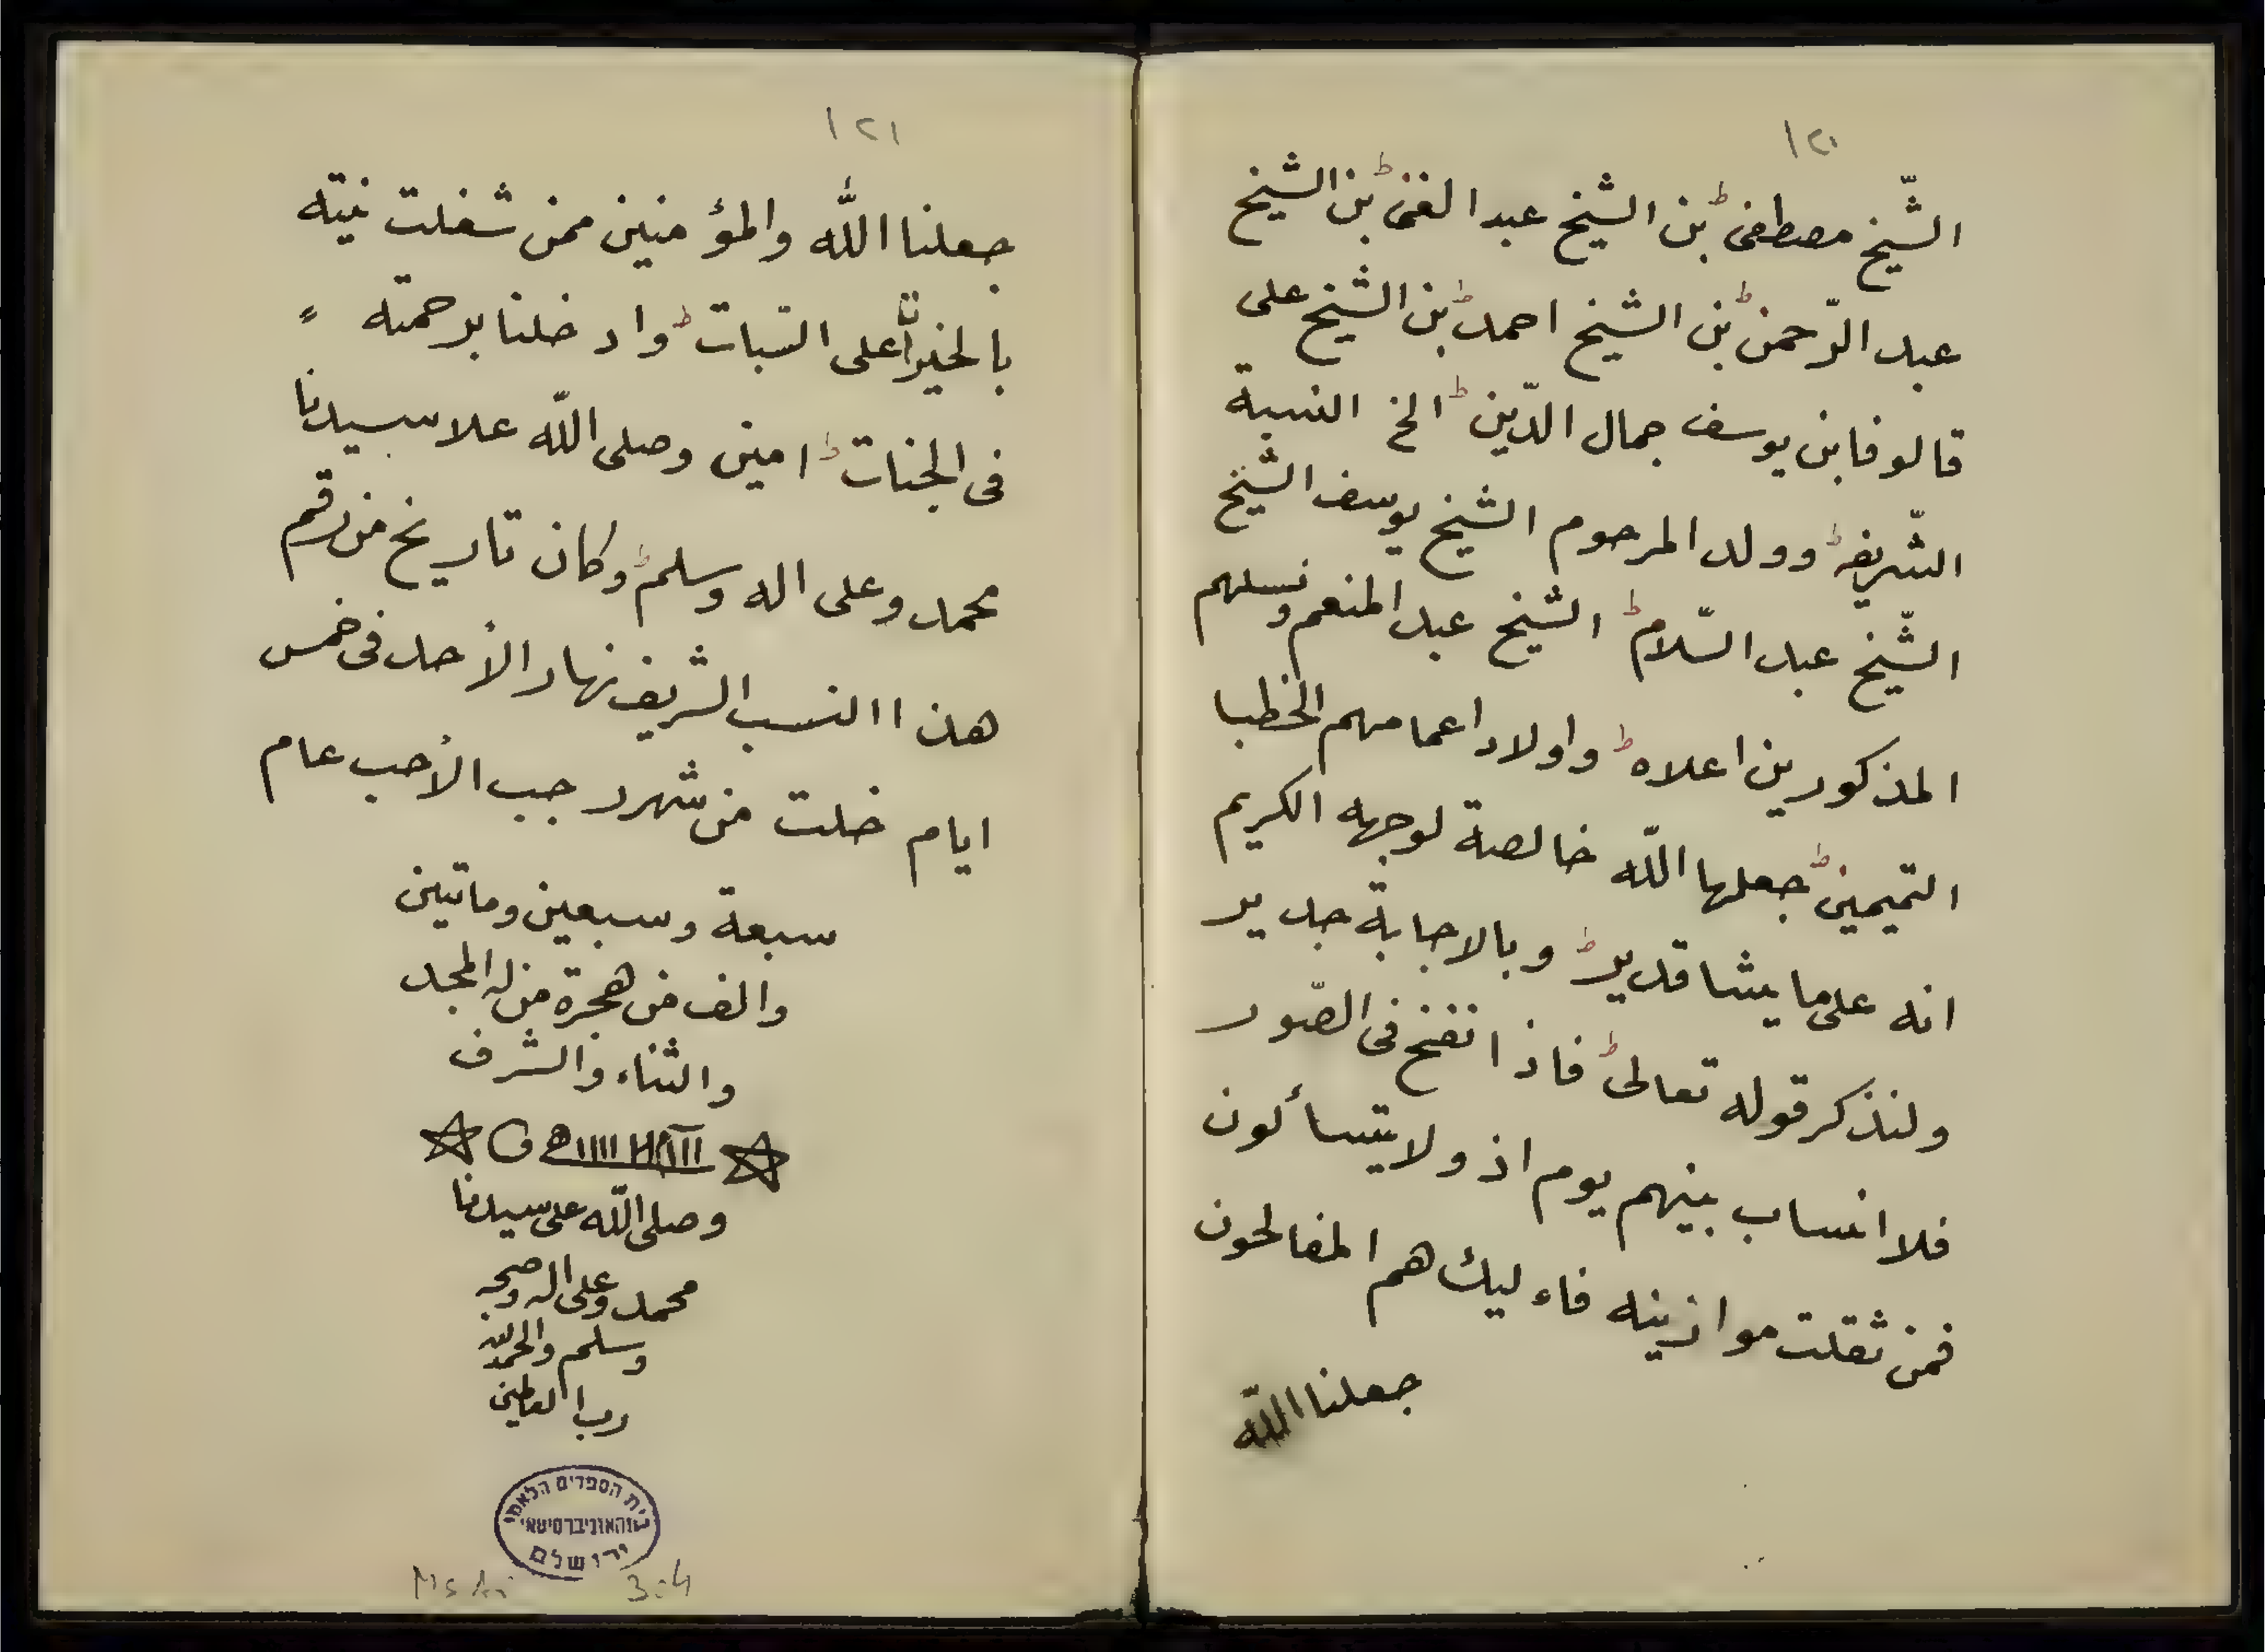 ١٢٠
الشّيخ مصطفى بن الشيخ عبد الغنى بن الشيخ
عبد الرّحمن بن الشيخ احمد بن الشيخ على
قالوفا بن يوسف جمال الدّين الخ النسبة
الشّريفه وولد المرحوم الشيخ يوسف الشيخ
الشّيخ عبد السّلام الشيخ عبد المنعم ونسلهم
المذكورين اعلاه واولاد اعمامهم الخطبا
التميمين جعلها اللّه خالصة لوجهه الكريم
انه على ما يشا قدير وبالاجابة جدير
ولنذكر قوله تعالى فاذا نفخ فى الصّور
فلا انساب بينهم يوم اذ ولا يتسألون
فمن ثقلت موازينه فاءليك هم المفالحون
جعلنا اللّه
١٢١
جعلنا اللّه والمؤمنين ممن شغلت نيته
بالخيرات على الثبات وادخلنا برحمته
فى الجنات امين وصلى اللّه علا سيدنا
محمد وعلى اله وسلم وكان تاريخ من رقم
هذا النسب الشريف نهار الأحد فى خمس
ايام خلت من شهر رجب الأصب عام
سبعة وسبعين وماتين
والف من هجرة من له المجد
والثناء والشرف
وصلى اللّه على سيدنا
محمد وعلى اله وصحبه
وسلم والحمد لله
رب العالمين
בית הספרים הלאמי
והאוניברסיטאי
ירושלם
Ms Ar 304